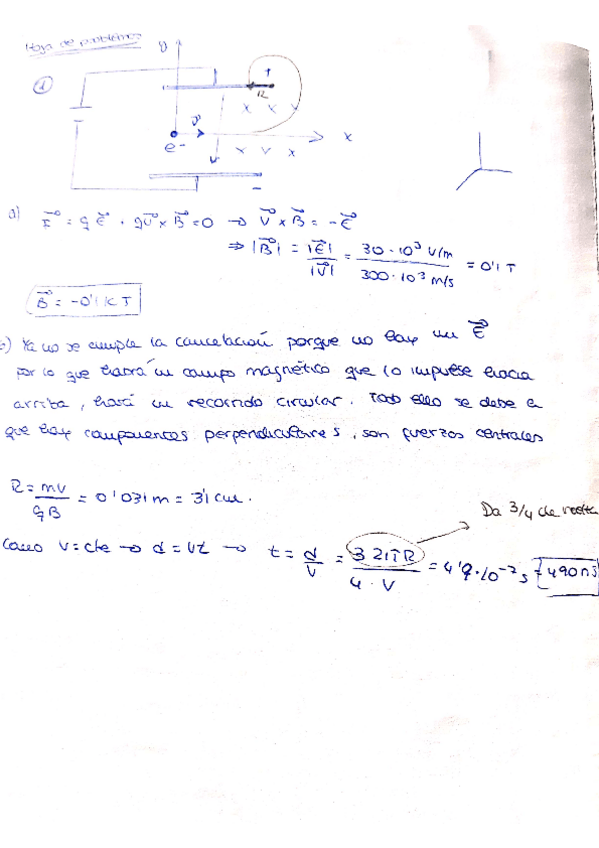 Hoja de problemas
1
y
+
R
x x x
v⃗
x
e-
x v x
-
a) F⃗ = qE⃗ + qv⃗ x B⃗ = 0 → v⃗ x B⃗ = -E⃗
⇒ |B⃗| = |E⃗| / |v⃗| = 30·10³ V/m / 300·10³ m/s = 0'1 T
B⃗ = -0'1 k T
Ya no se cumple la cancelación porque no hay un E⃗
por lo que habrá un campo magnético que lo impulse hacia
arriba, hará un recorrido circular. Todo ello se debe a
que hay componentes perpendiculares, son fuerzas centrales
R = mv / qB = 0'031 m = 31 cm.
Da 3/4 de vuelta
Como v = cte → d = vt → t = d / v = 3 2πR / 4 · v = 4'9·10⁻⁷ s = 490 ns